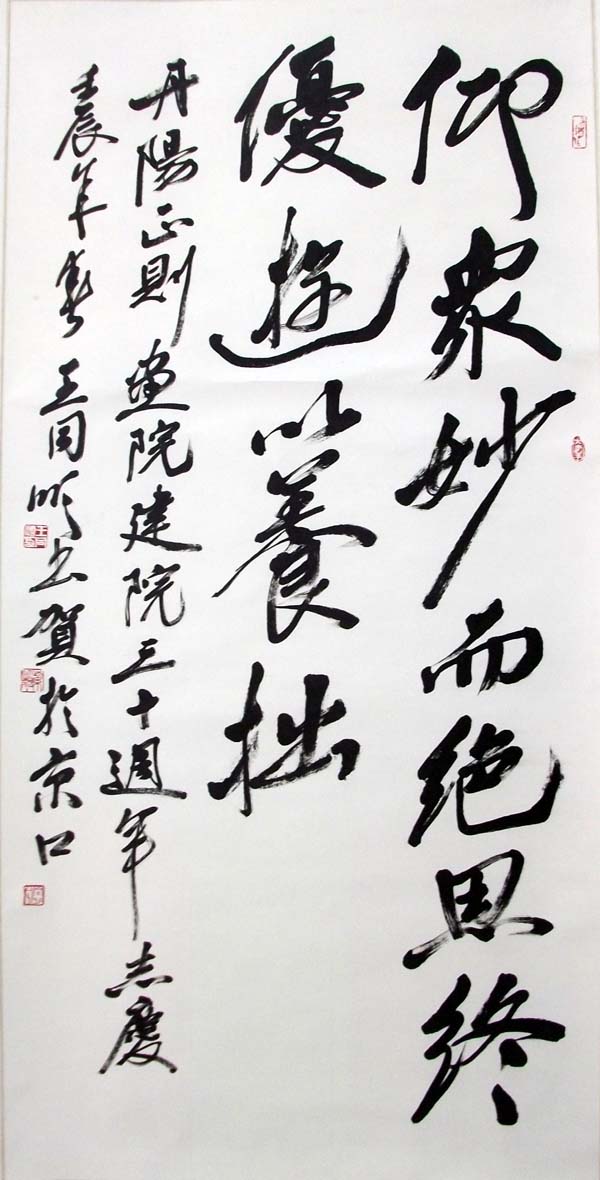 仰衆妙而絶思終
優遊以養拙
丹陽正則畫院建院三十週年志慶
壬辰年春王同順书賀於京口